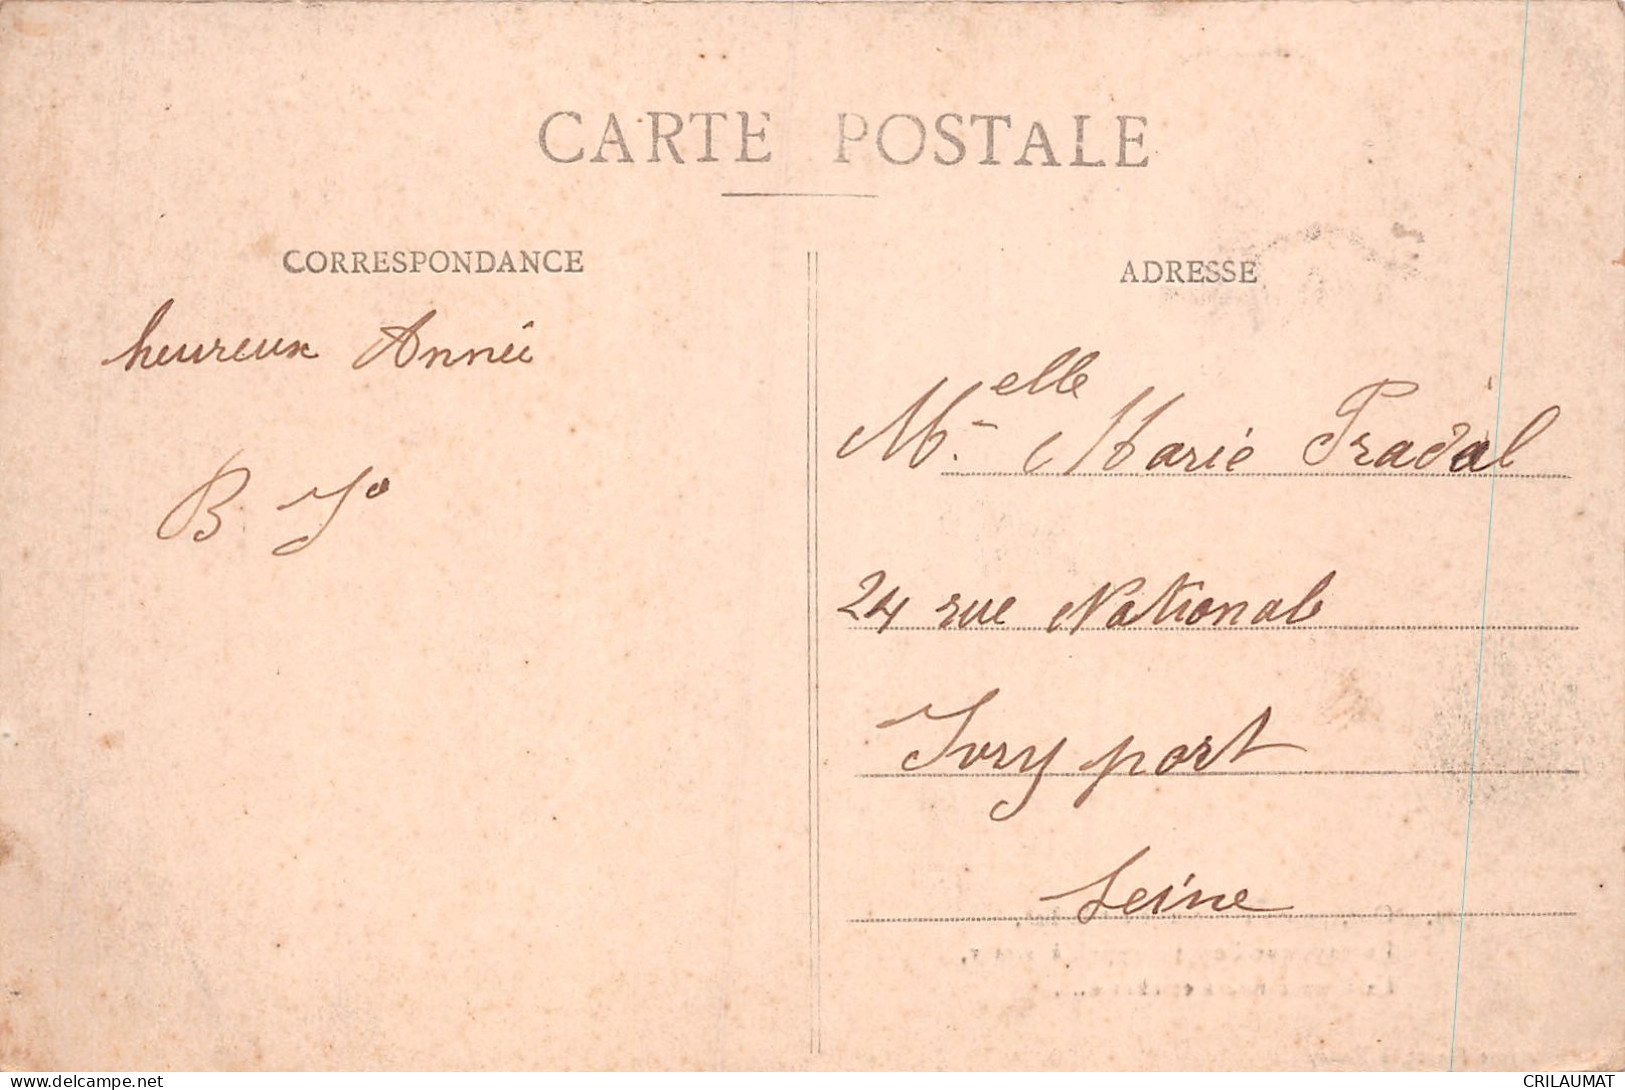 CARTE POSTALE
CORRESPONDANCE
ADRESSE
heureux Année
B. J°
Melle Marie Pradal
24 rue National
Ivry port
Seine
delcampe.net
CRILAUMAT